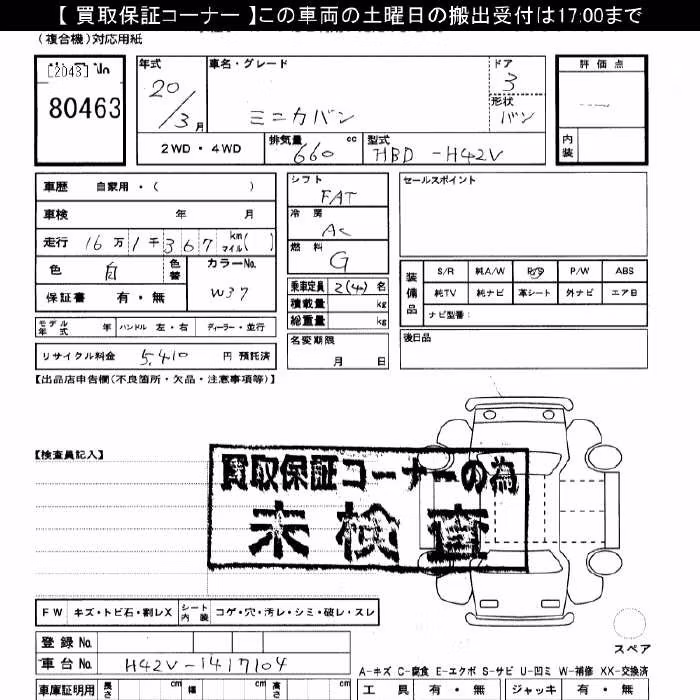 【 買取保証コーナー 】この車両の土曜日の搬出受付は17:00まで
(複合機)対応用紙
[2043] No
80463
年式 20/3月
車名・グレード ミニカバン
ドア 3
形状 バン
評価点
内装
2WD・4WD
排気量 660 cc
型式 HBD-H42V
車歴 自家用・( )
車検 年 月
走行 16万1千367 km マイル( )
色 白 色替
カラーNo. W37
保証書 有・無
シフト FAT
冷房 AC
燃料 G
乗車定員 2(4)名
積載量 kg
総重量 kg
セールスポイント
装備品
S/R 純A/W P/S P/W ABS
純TV 純ナビ 革シート 外ナビ エアB
ナビ型番:
モデル年式 年 ハンドル 左・右 ディーラー・並行
名変期限 月 日
後日品
リサイクル料金 5,410 円 預託済
【出品店申告欄(不良箇所・欠品・注意事項等)】
【検査員記入】
買取保証コーナーの為
未検査
FW キズ・トビ石・割レX シート内装 コゲ・穴・汚レ・シミ・破レ・スレ
スペア
登録No.
車台No. H42V-1417104
A-キズ C-腐食 E-エクボ S-サビ U-凹ミ W-補修 XX-交換済
車庫証明用 長さ cm 幅 cm 高さ cm
工具 有・無 ジャッキ 有・無